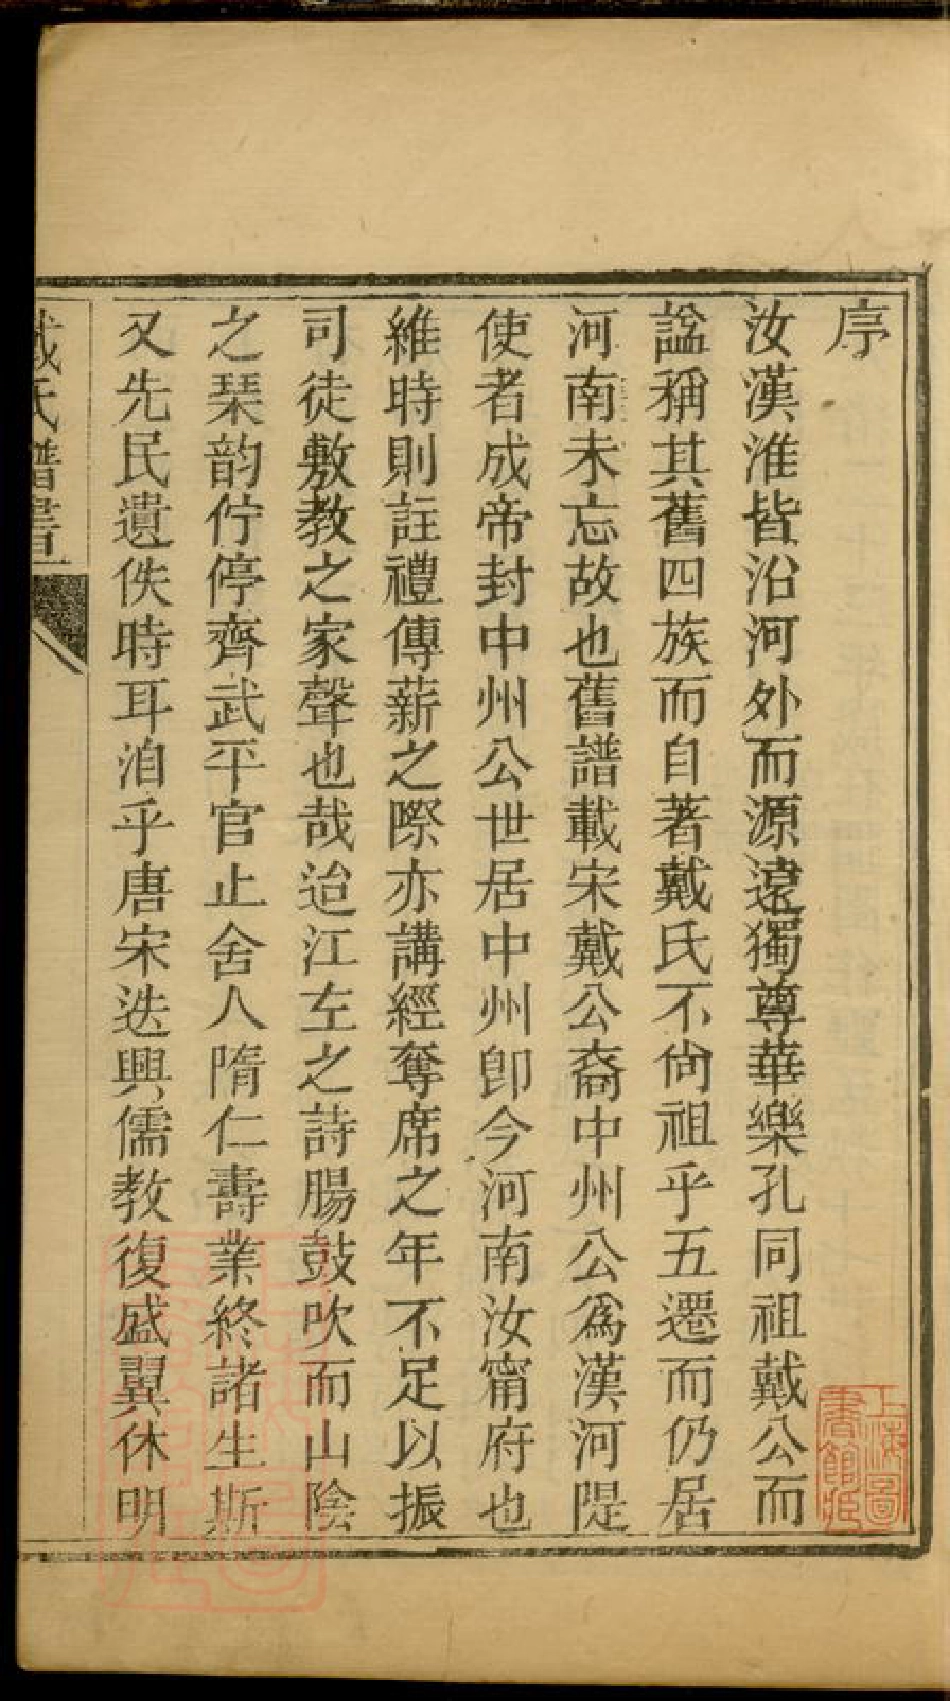 序
汝漢淮皆沿河外而源遠獨尊華樂孔同祖戴公而
諡稱其舊四族而自著戴氏不尙祖乎五遷而仍居
河南未忘故也舊譜載宋戴公裔中州公爲漢河隄
使者成帝封中州公世居中州卽今河南汝甯府也
維時則註禮傳薪之際亦講經奪席之年不足以振
司徒敷教之家聲也哉迨江左之詩腸鼓吹而山陰
之琴韵佇停齊武平官止舍人隋仁壽業終諸生斯
又先民遺佚時耳洎乎唐宋迭興儒教復盛翼休明
戴氏譜書
上海圖書館藏